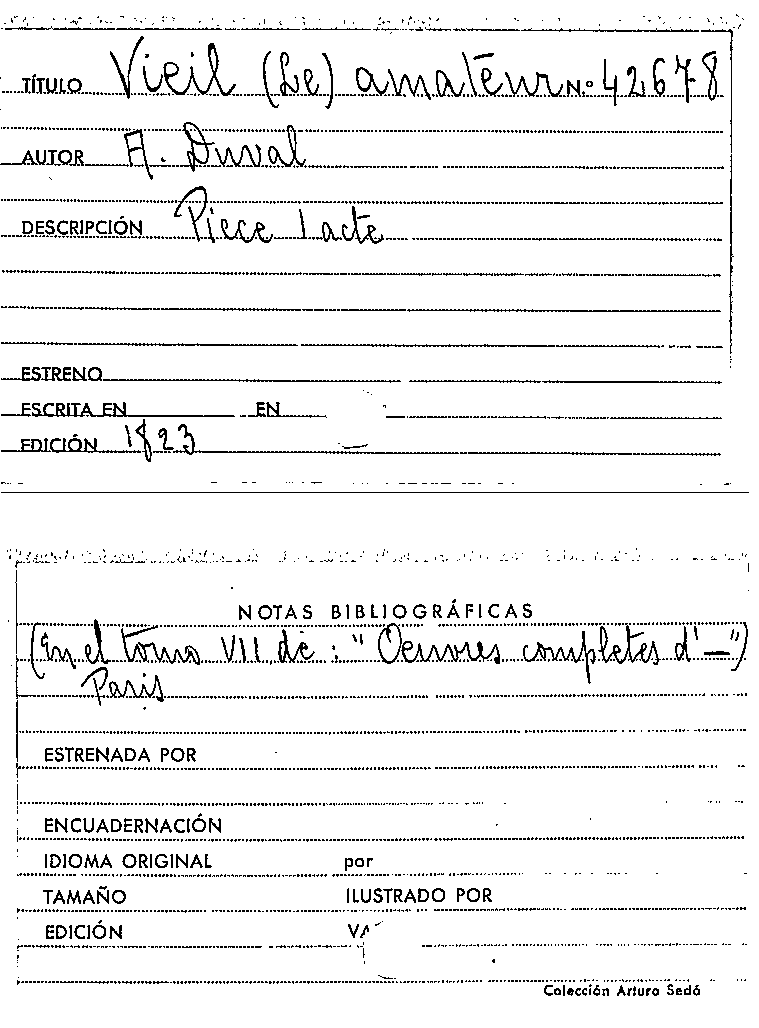 TÍTULO Vieil (Le) amatéur N.º 42678
AUTOR A. Duval
DESCRIPCIÓN Piece 1 acte
ESTRENO
ESCRITA EN EN
EDICIÓN 1823
NOTAS BIBLIOGRÁFICAS
(En el tomo VII de: "Oeuvres completes d'—")
Paris
ESTRENADA POR
ENCUADERNACIÓN
IDIOMA ORIGINAL por
TAMAÑO ILUSTRADO POR
EDICIÓN
Colección Arturo Sedó